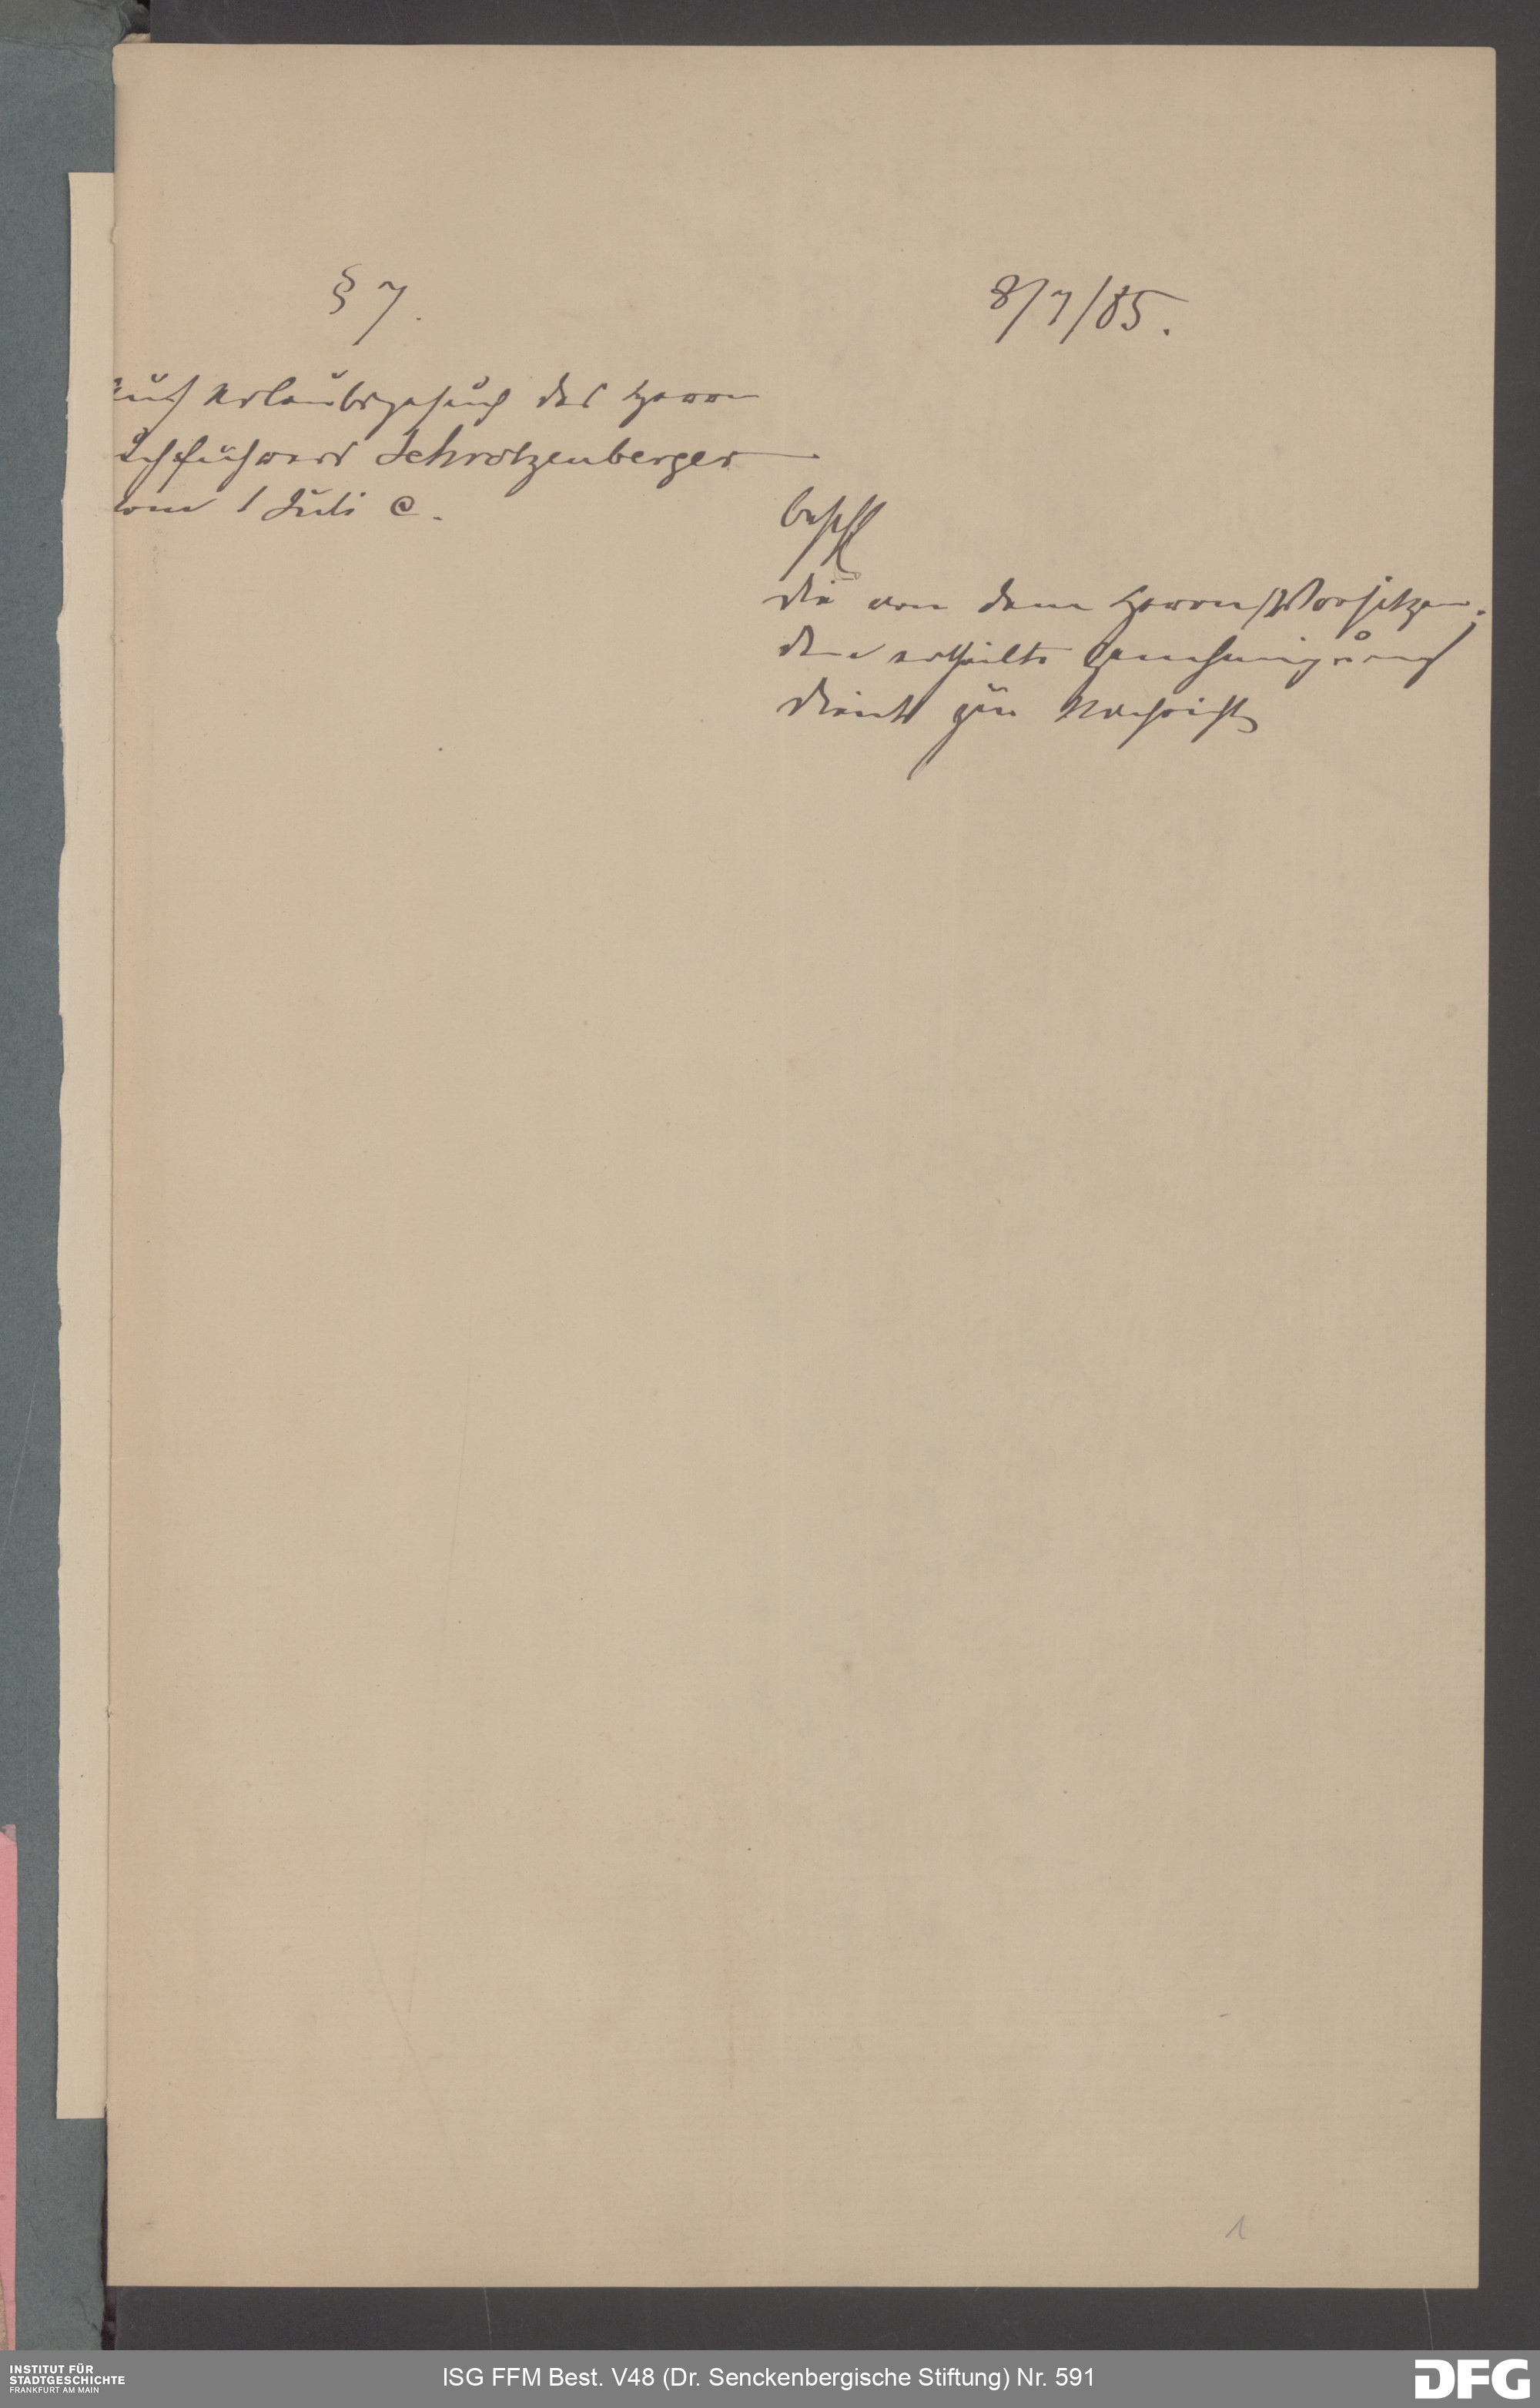 § 7.
8/7/85.
Auf Urlaubsgesuch des Herrn
Buchführers Schrotzenberger
vom 1 Juli c.
beschl
die von dem Herrn Vorsitzen-
den ertheilte Genehmigung
dient zur Nachricht
1
INSTITUT FÜR
STADTGESCHICHTE
FRANKFURT AM MAIN
ISG FFM Best. V48 (Dr. Senckenbergische Stiftung) Nr. 591
DFG